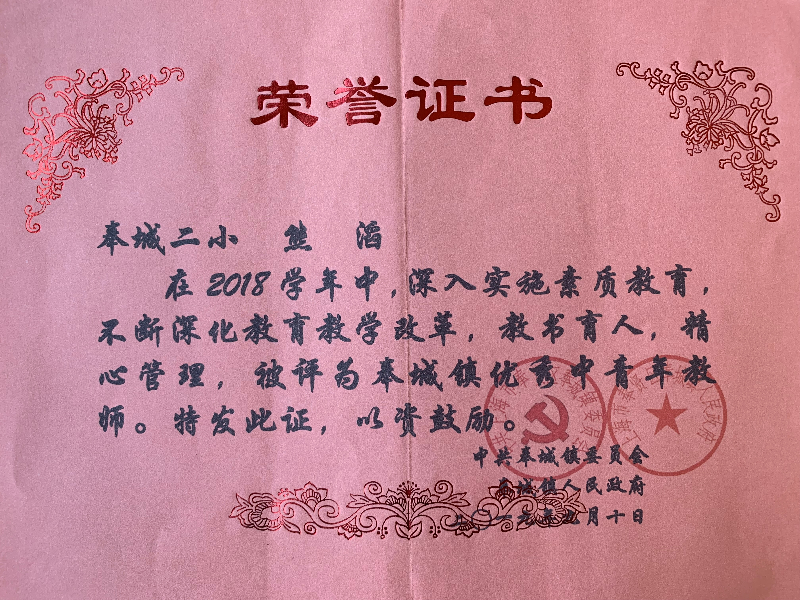 荣誉证书
奉城二小 熊 滔
在2018学年中，深入实施素质教育，
不断深化教育教学改革，教书育人，精
心管理，被评为奉城镇优秀中青年教
师。特发此证，以资鼓励。
中共奉城镇委员会
奉城镇人民政府
二〇一九年九月十日